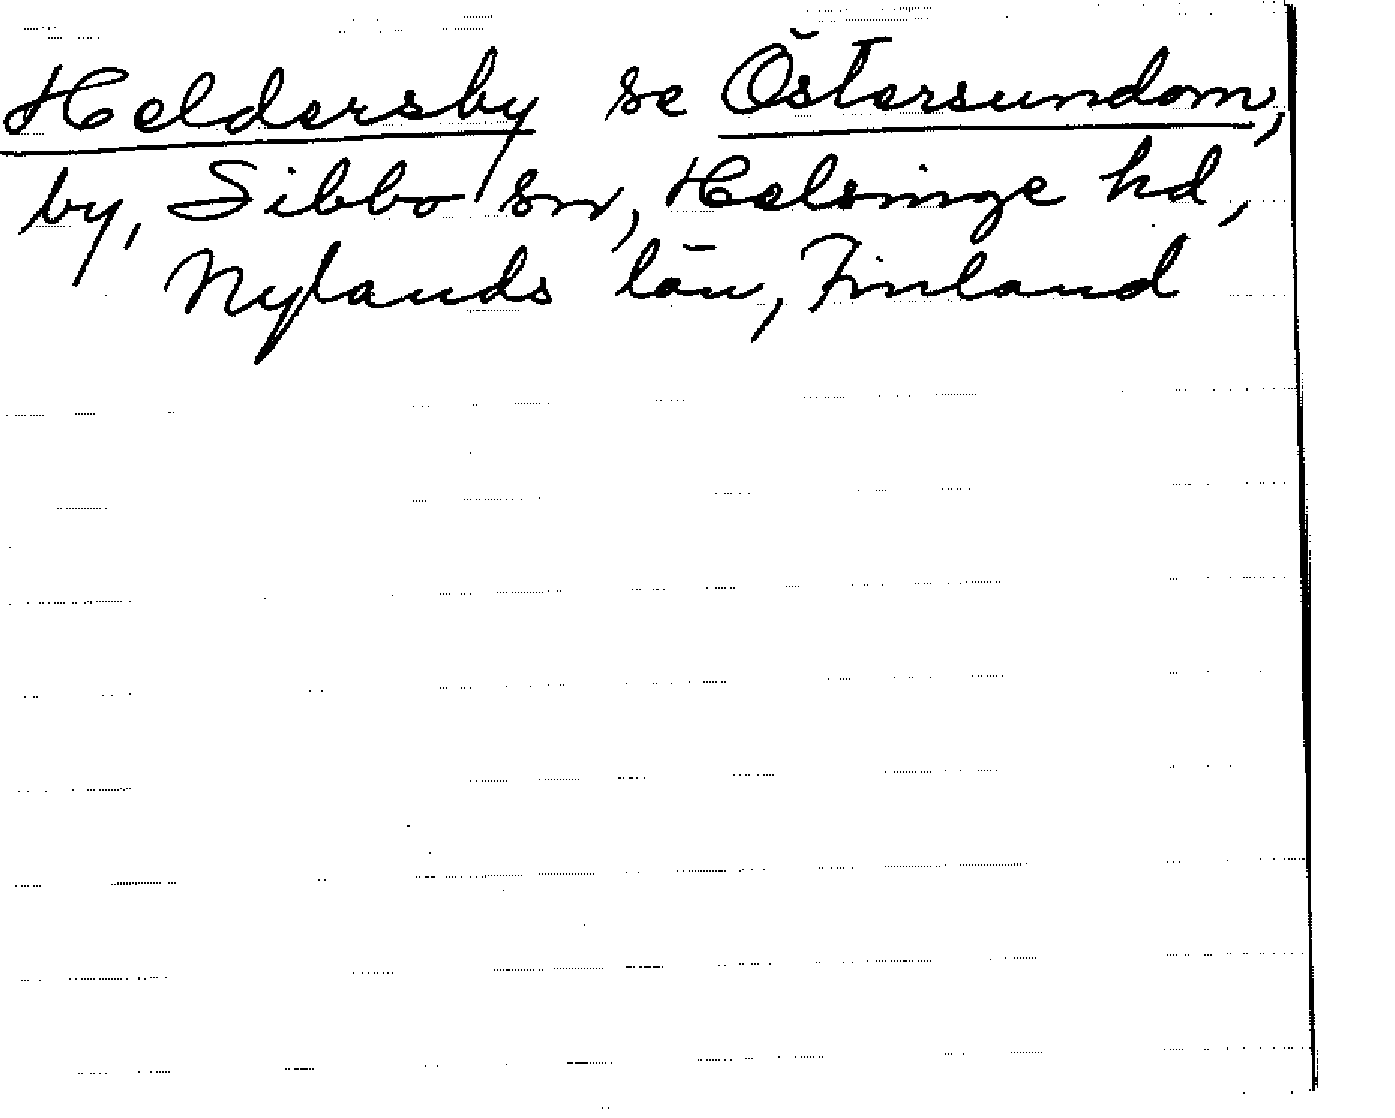 Heldersby se Östersundom,
by, Sibbo sn, Helsinge hd,
Nylands län, Finland